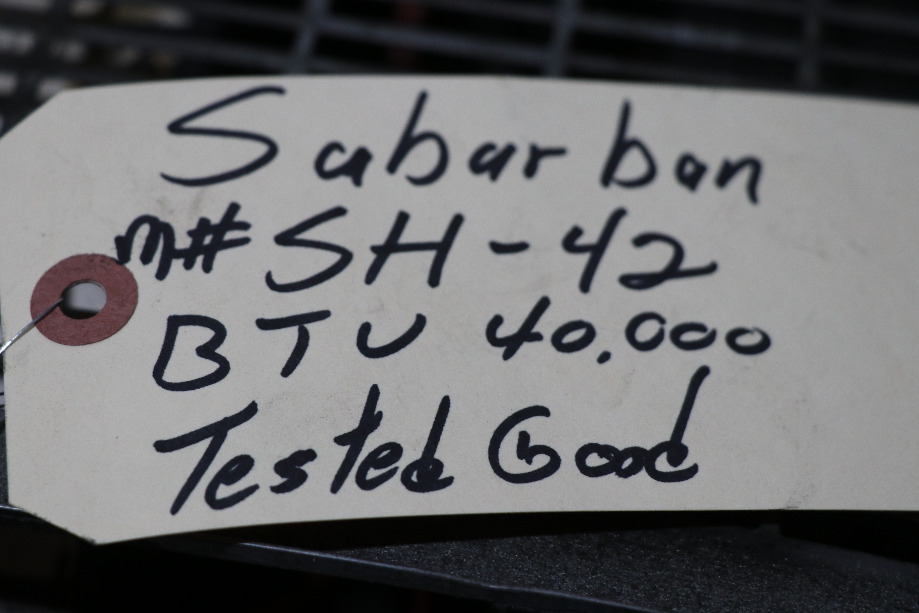 Saburban
M# SH-42
BTU 40,000
Tested Good